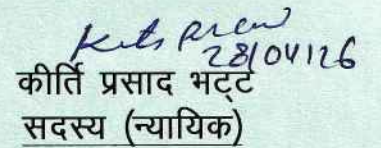 28/04/126
कीर्ति प्रसाद भट्ट
सदस्य (न्यायिक)